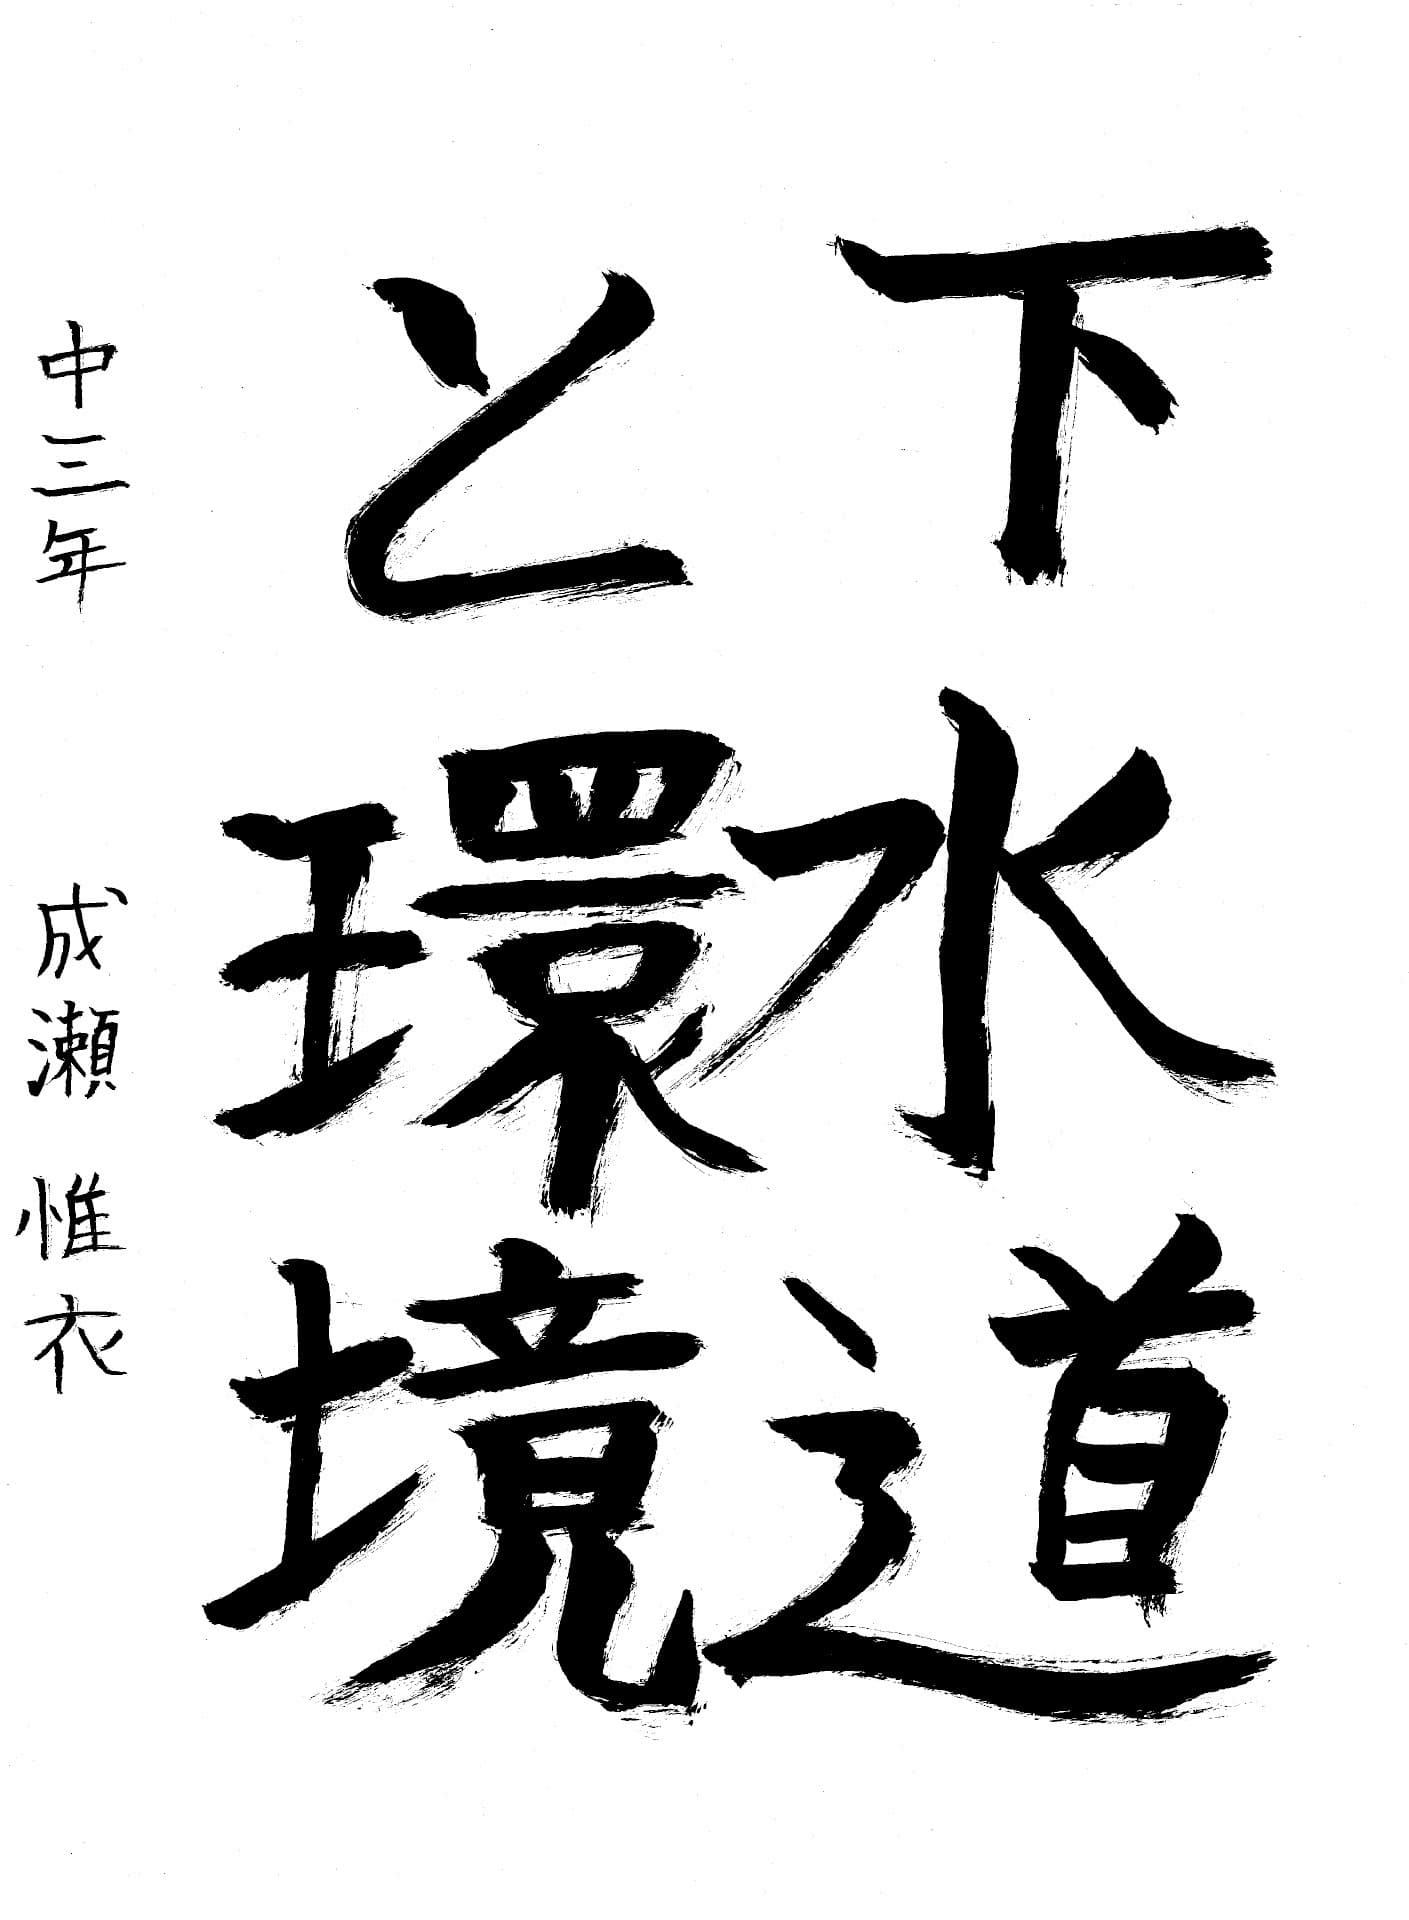 下水道
と環境
中三年 成瀬惟衣